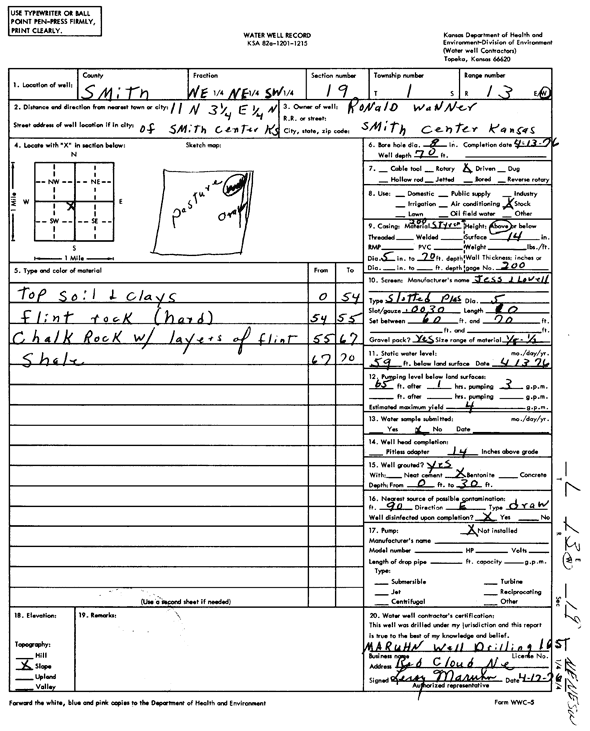 USE TYPEWRITER OR BALL
POINT PEN-PRESS FIRMLY,
PRINT CLEARLY.
WATER WELL RECORD
KSA 82a-1201-1215
Kansas Department of Health and
Environment-Division of Environment
(Water well Contractors)
Topeka, Kansas 66620
1. Location of well: County Smith Fraction NE 1/4 NE 1/4 SW 1/4 Section number 19 Township number T 1 S Range number R 13 E/W
2. Distance and direction from nearest town or city: 11 N 3 1/4 E 1/4 N
Street address of well location if in city: of Smith Center Ks
3. Owner of well: Ronald Wanner
R.R. or street:
City, state, zip code: Smith Center Kansas
4. Locate with "X" in section below:
Sketch map:
N
NW NE
W E
X
SW SE
S
1 Mile
1 Mile
pasture
draw
5. Type and color of material From To
Top Soil & Clays 0 54
flint rock (hard) 54 55
Chalk Rock w/ layers of flint 55 67
Shale 67 70
(Use a second sheet if needed)
6. Bore hole dia. 8 in. Completion date 4-13-76
Well depth 70 ft.
7. Cable tool Rotary X Driven Dug
Hollow rod Jetted Bored Reverse rotary
8. Use: Domestic Public supply Industry
Irrigation Air conditioning X Stock
Lawn Oil field water Other
9. Casing: Material 200 Styrene Height: Above or below
Threaded Welded Surface 14 in.
RMP PVC Weight lbs./ft.
Dia. 5 in. to 70 ft. depth Wall Thickness: inches or
Dia. in. to ft. depth gage No. 200
10. Screen: Manufacturer's name Jess & Lowell
Type Slotted Plas Dia. 5
Slot/gauze .0030 Length 10
Set between 60 ft. and 70 ft.
ft. and ft.
Gravel pack? Yes Size range of material 1/8-1/2
11. Static water level: mo./day/yr.
59 ft. below land surface Date 4 13 76
12. Pumping level below land surfaces:
65 ft. after 1 hrs. pumping 3 g.p.m.
ft. after hrs. pumping g.p.m.
Estimated maximum yield 4 g.p.m.
13. Water sample submitted: mo./day/yr.
Yes X No Date
14. Well head completion:
Pitless adapter 14 Inches above grade
15. Well grouted? Yes
With: Neat cement X Bentonite Concrete
Depth: From 0 ft. to 30 ft.
16. Nearest source of possible contamination:
ft. 90 Direction E Type draw
Well disinfected upon completion? X Yes No
17. Pump: X Not installed
Manufacturer's name
Model number HP Volts
Length of drop pipe ft. capacity g.p.m.
Type:
Submersible Turbine
Jet Reciprocating
Centrifugal Other
18. Elevation:
Topography:
Hill
X Slope
Upland
Valley
19. Remarks:
20. Water well contractor's certification:
This well was drilled under my jurisdiction and this report
is true to the best of my knowledge and belief.
MARUHN Well Drilling 165T
Business name License No.
Address Red Cloud Ne
Signed Leroy Maruhn Date 4-17-76
Authorized representative
Forward the white, blue and pink copies to the Department of Health and Environment
Form WWC-5
T 1 R 13 W Sec 19
1/4 1/4 1/4 NE NE SW